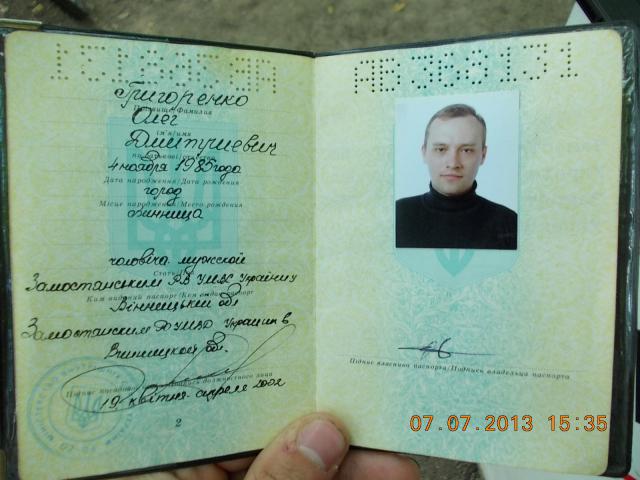 Григоренко
Прізвище/Фамилия
Олег
Ім'я/имя
4 ноября 1985 года
Дата народження/Дата рождения
город
Місце народження/Место рождения
Винница
чоловіча мужской
Стать/
Замостянським РВ УМВС України у
Ким виданий паспорт/Кем выдан паспорт
Вінницькій обл
Замостянским РО УМВД Украины в
Винницкой обл.
19 квітня - апреля 2002
2
АВ 363131
Підпис власника паспорта/Подпись владельца паспорта
07.07.2013 15:35